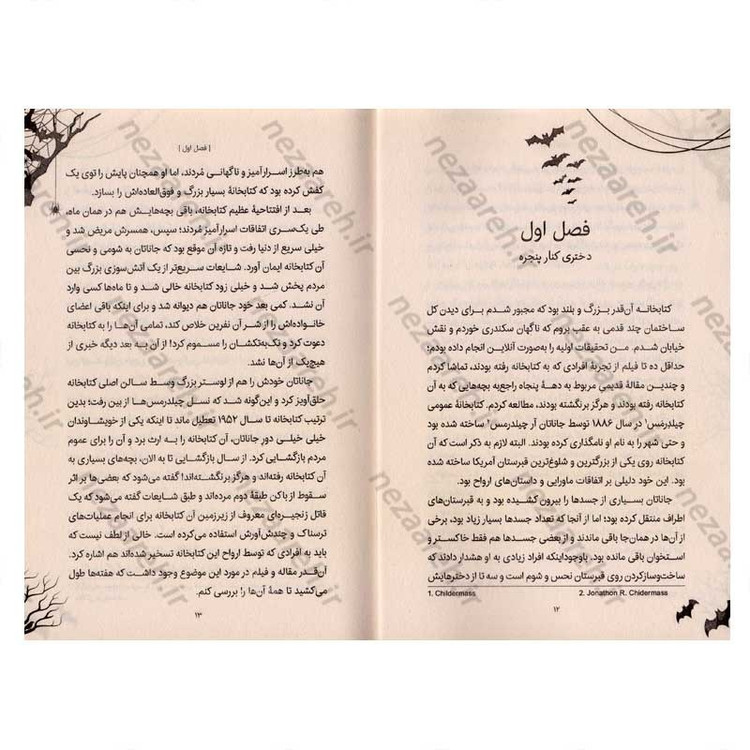 فصل اول
دختری کنار پنجره
کتابخانه آن‌قدر بزرگ و بلند بود که مجبور شدم برای دیدن کل
ساختمان چند قدمی به عقب بروم که ناگهان سکندری خوردم و نقش
خیابان شدم. من تحقیقات اولیه را به‌صورت آنلاین انجام داده بودم؛
حداقل ده تا فیلم از تجربهٔ افرادی که به کتابخانه رفته بودند، تماشا کردم
و چندین مقالهٔ قدیمی مربوط به دههٔ پنجاه راجع‌به بچه‌هایی که به آن
کتابخانه رفته بودند و هرگز برنگشته بودند، مطالعه کردم. کتابخانهٔ عمومی
چیلدرمس¹ در سال ۱۸۸۶ توسط جاناتان آر چیلدرمس² ساخته شده بود
و حتی شهر را به نام او نامگذاری کرده بودند. البته لازم به ذکر است که آن
کتابخانه روی یکی از بزرگترین و شلوغ‌ترین قبرستان آمریکا ساخته شده
بود. این خود دلیلی بر اتفاقات ماورایی و داستان‌های ارواح بود.
جاناتان بسیاری از جسدها را بیرون کشیده بود و به قبرستان‌های
اطراف منتقل کرده بود؛ اما از آنجا که تعداد جسدها بسیار زیاد بود، برخی
از آن‌ها در همان‌جا باقی ماندند و از بعضی جسدها هم فقط خاکستر و
استخوان باقی مانده بود. باوجوداینکه افراد زیادی به او هشدار دادند که
ساخت‌وسازکردن روی قبرستان نحس و شوم است و سه تا از دخترهایش
1. Childermass
2. Jonathon R. Chidermass
۱۲
| فصل اول |
هم به‌طرز اسرارآمیز و ناگهانی مُردند، اما او همچنان پایش را توی یک
کفش کرده بود که کتابخانهٔ بسیار بزرگ و فوق‌العاده‌اش را بسازد.
بعد از افتتاحیهٔ عظیم کتابخانه، باقی بچه‌هایش هم در همان ماه،
طی یک‌سری اتفاقات اسرارآمیز مُردند؛ سپس، همسرش مریض شد و
خیلی سریع از دنیا رفت و تازه آن موقع بود که جاناتان به شومی و نحسی
آن کتابخانه ایمان آورد. شایعات سریع‌تر از یک آتش‌سوزی بزرگ بین
مردم پخش شد و خیلی زود کتابخانه خالی شد و تا ماه‌ها کسی وارد
آن نشد. کمی بعد خود جاناتان هم دیوانه شد و برای اینکه باقی اعضای
خانواده‌اش را از شر آن نفرین خلاص کند، تمامی آن‌ها را به کتابخانه
دعوت کرد و تک‌به‌تکشان را مسموم کرد! از آن به بعد دیگه خبری از
هیچ‌یک از آن‌ها نشد.
جاناتان خودش را هم از لوستر بزرگ وسط سالن اصلی کتابخانه
حلق‌آویز کرد و این‌گونه شد که نسل چیلدرمس‌ها از بین رفت؛ بدین
ترتیب کتابخانه تا سال ۱۹۵۲ تعطیل ماند تا اینکه یکی از خویشاوندان
خیلی خیلی دورِ جاناتان، آن کتابخانه را به ارث برد و آن را برای عموم
مردم بازگشایی کرد. از سال بازگشایی تا به الان، بچه‌های بسیاری به
آن کتابخانه رفته‌اند و هرگز برنگشته‌اند! گفته می‌شود که بعضی‌ها بر اثر
سقوط از بالکن طبقهٔ دوم مرده‌اند و طبق شایعات گفته می‌شود که یک
قاتل زنجیره‌ای معروف از زیرزمین آن کتابخانه برای انجام عملیات‌های
ترسناک و چندش‌آورش استفاده می‌کرده است. خالی از لطف نیست که
باید به افرادی که توسط ارواح این کتابخانه تسخیر شده‌اند هم اشاره کرد.
آن‌قدر مقاله و فیلم در مورد این موضوع وجود داشت که هفته‌ها طول
می‌کشید تا همهٔ آن‌ها را بررسی کنم.
۱۳
nezaareh.ir